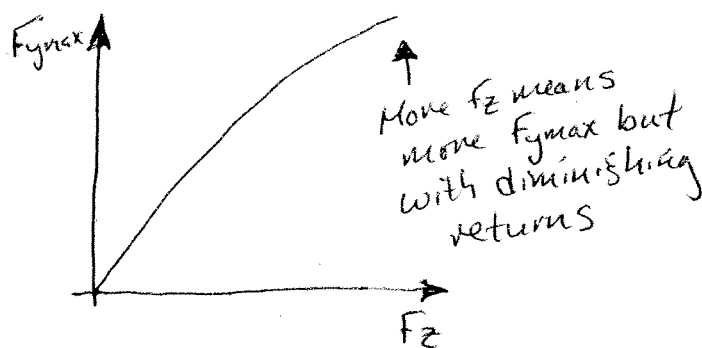 Fymax
More Fz means
more Fymax but
with diminishing
returns
Fz